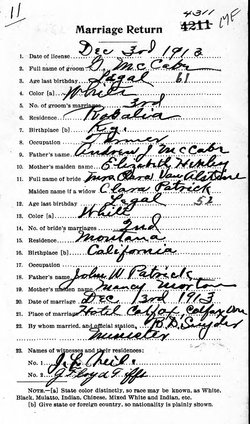 11
4311
4211
Marriage Return
1. Date of license Dec 3rd 1913
2. Full name of groom G. McCabe
3. Age last birthday Legal 61
4. Color (a) White
5. No. of groom's marriages 3rd
6. Residence Rosalia
7. Birthplace (b) Ky.
8. Occupation
9. Father's name Andrew J McCabe
10. Mother's maiden name Elizabeth
11. Full name of bride Mrs Clara Van Alstine
Maiden name if a widow Clara Patrick
12. Age last birthday Legal 52
13. Color (a) White
14. No. of bride's marriages 2nd
15. Residence Montana
16. Birthplace (b) California
17. Occupation
18. Father's name John W. Patrick
19. Mother's maiden name Nancy Morton
20. Date of marriage Dec 13rd 1913
21. Place of marriage Hotel Colfax, Colfax, Wn
22. By whom married, and official station D. D. Snyder
Minister
23. Names of witnesses and their residences:
No. 1
No. 2 J. Floyd
NOTE.—[a] State color distinctly, so race may be known, as White,
Black, Mulatto, Indian, Chinese, Mixed White and Indian, etc.
[b] Give state or foreign country, so nationality is plainly shown.